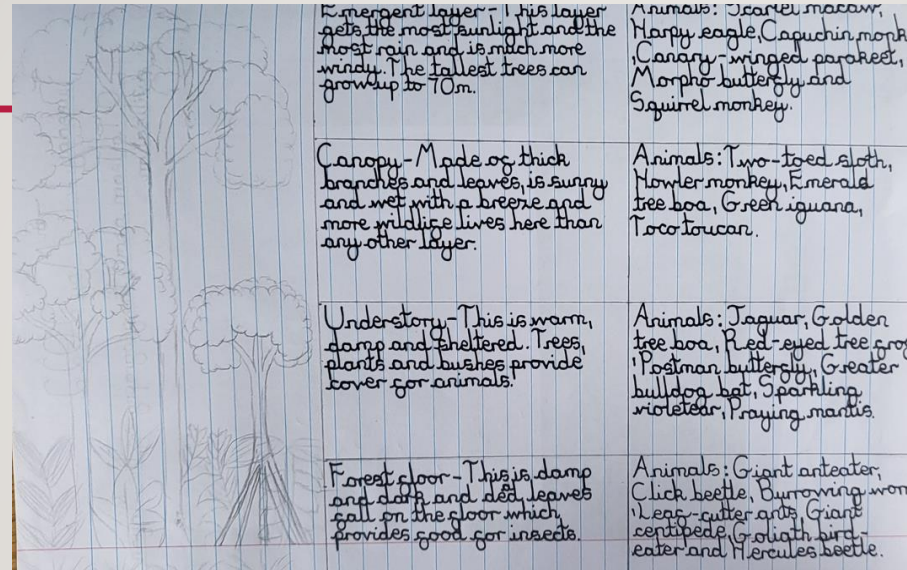 Emergent layer - This layer
gets the most sunlight and the
most rain and is much more
windy. The tallest trees can
grow up to 70m.
Animals: Scarlet macaw,
Harpy eagle, Capuchin monk
, Canary-winged parakeet,
Morpho butterfly and
Squirrel monkey.
Canopy - Made of thick
branches and leaves, is sunny
and wet with a breeze and
more wildlife lives here than
any other layer.
Animals: Two-toed sloth,
Howler monkey, Emerald
tree boa, Green iguana,
Toco toucan.
Understory - This is warm,
damp and sheltered. Trees,
plants and bushes provide
cover for animals.
Animals: Jaguar, Golden
tree boa, Red-eyed tree frog
, Postman butterfly, Greater
bulldog bat, Sparkling
violetear, Praying mantis.
Forest floor - This is damp
and dark and ded leaves
fall on the floor which
provides food for insects.
Animals: Giant anteater,
Click beetle, Burrowing wor
, Leaf-cutter ants, Giant
centipede, Goliath bird-
eater and Hercules beetle.